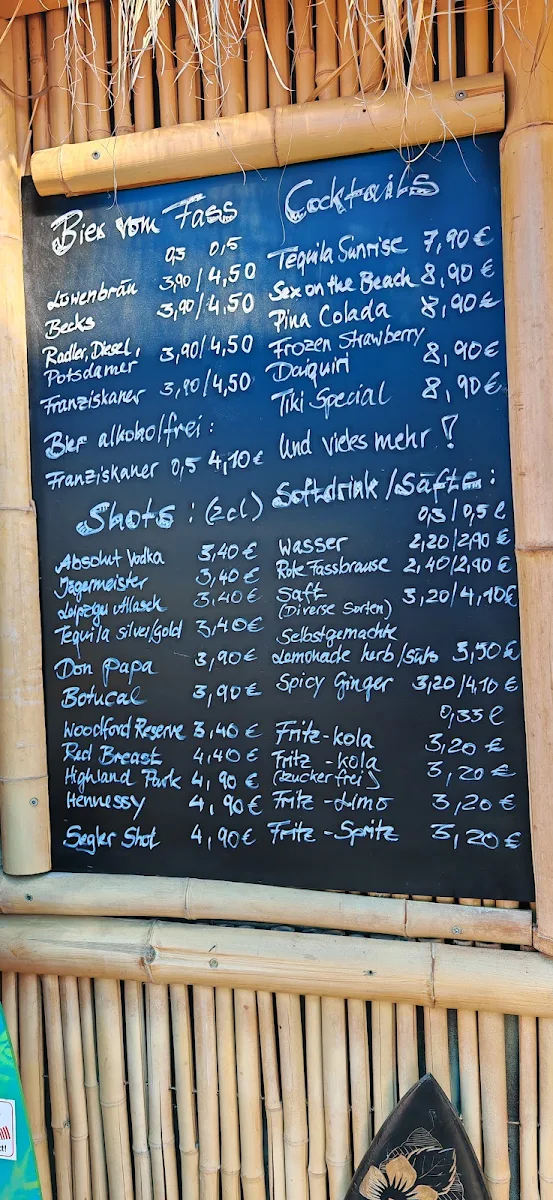 Bier vom Fass
0,3 0,5
Löwenbräu 3,90/4,50
Becks 3,90/4,50
Radler, Diesel,
Potsdamer 3,90/4,50
Franziskaner 3,90/4,50
Bier alkoholfrei:
Franziskaner 0,5 4,10€
Shots: (2cl)
Absolut Vodka 3,40€
Jägermeister 3,40€
Leipzger Allasch 3,40€
Tequila silver/Gold 3,40€
Don Papa 3,90€
Botucal 3,90€
Woodford Reserve 3,40€
Red Breast 4,40€
Highland Park 4,90€
Hennessy 4,90€
Segler Shot 4,90€
Cocktails
Tequila Sunrise 7,90€
Sex on the Beach 8,90€
Pina Colada 8,90€
Frozen Strawberry
Daiquiri 8,90€
Tiki Special 8,90€
Und vieles mehr!
Softdrink/Säfte:
0,3/0,5l
Wasser 2,20/2,90€
Rote Fassbrause 2,40/2,90€
Saft 3,20/4,10€
(Diverse Sorten)
Selbstgemachte
Lemonade herb/süß 3,50€
Spicy Ginger 3,20/4,10€
0,33l
Fritz-kola 3,20€
Fritz-kola 3,20€
(zuckerfrei)
Fritz-Limo 3,20€
Fritz-Spritz 3,20€